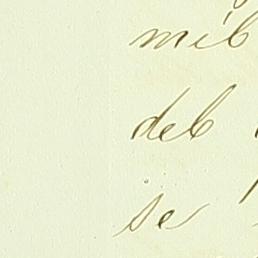 mil
del
se